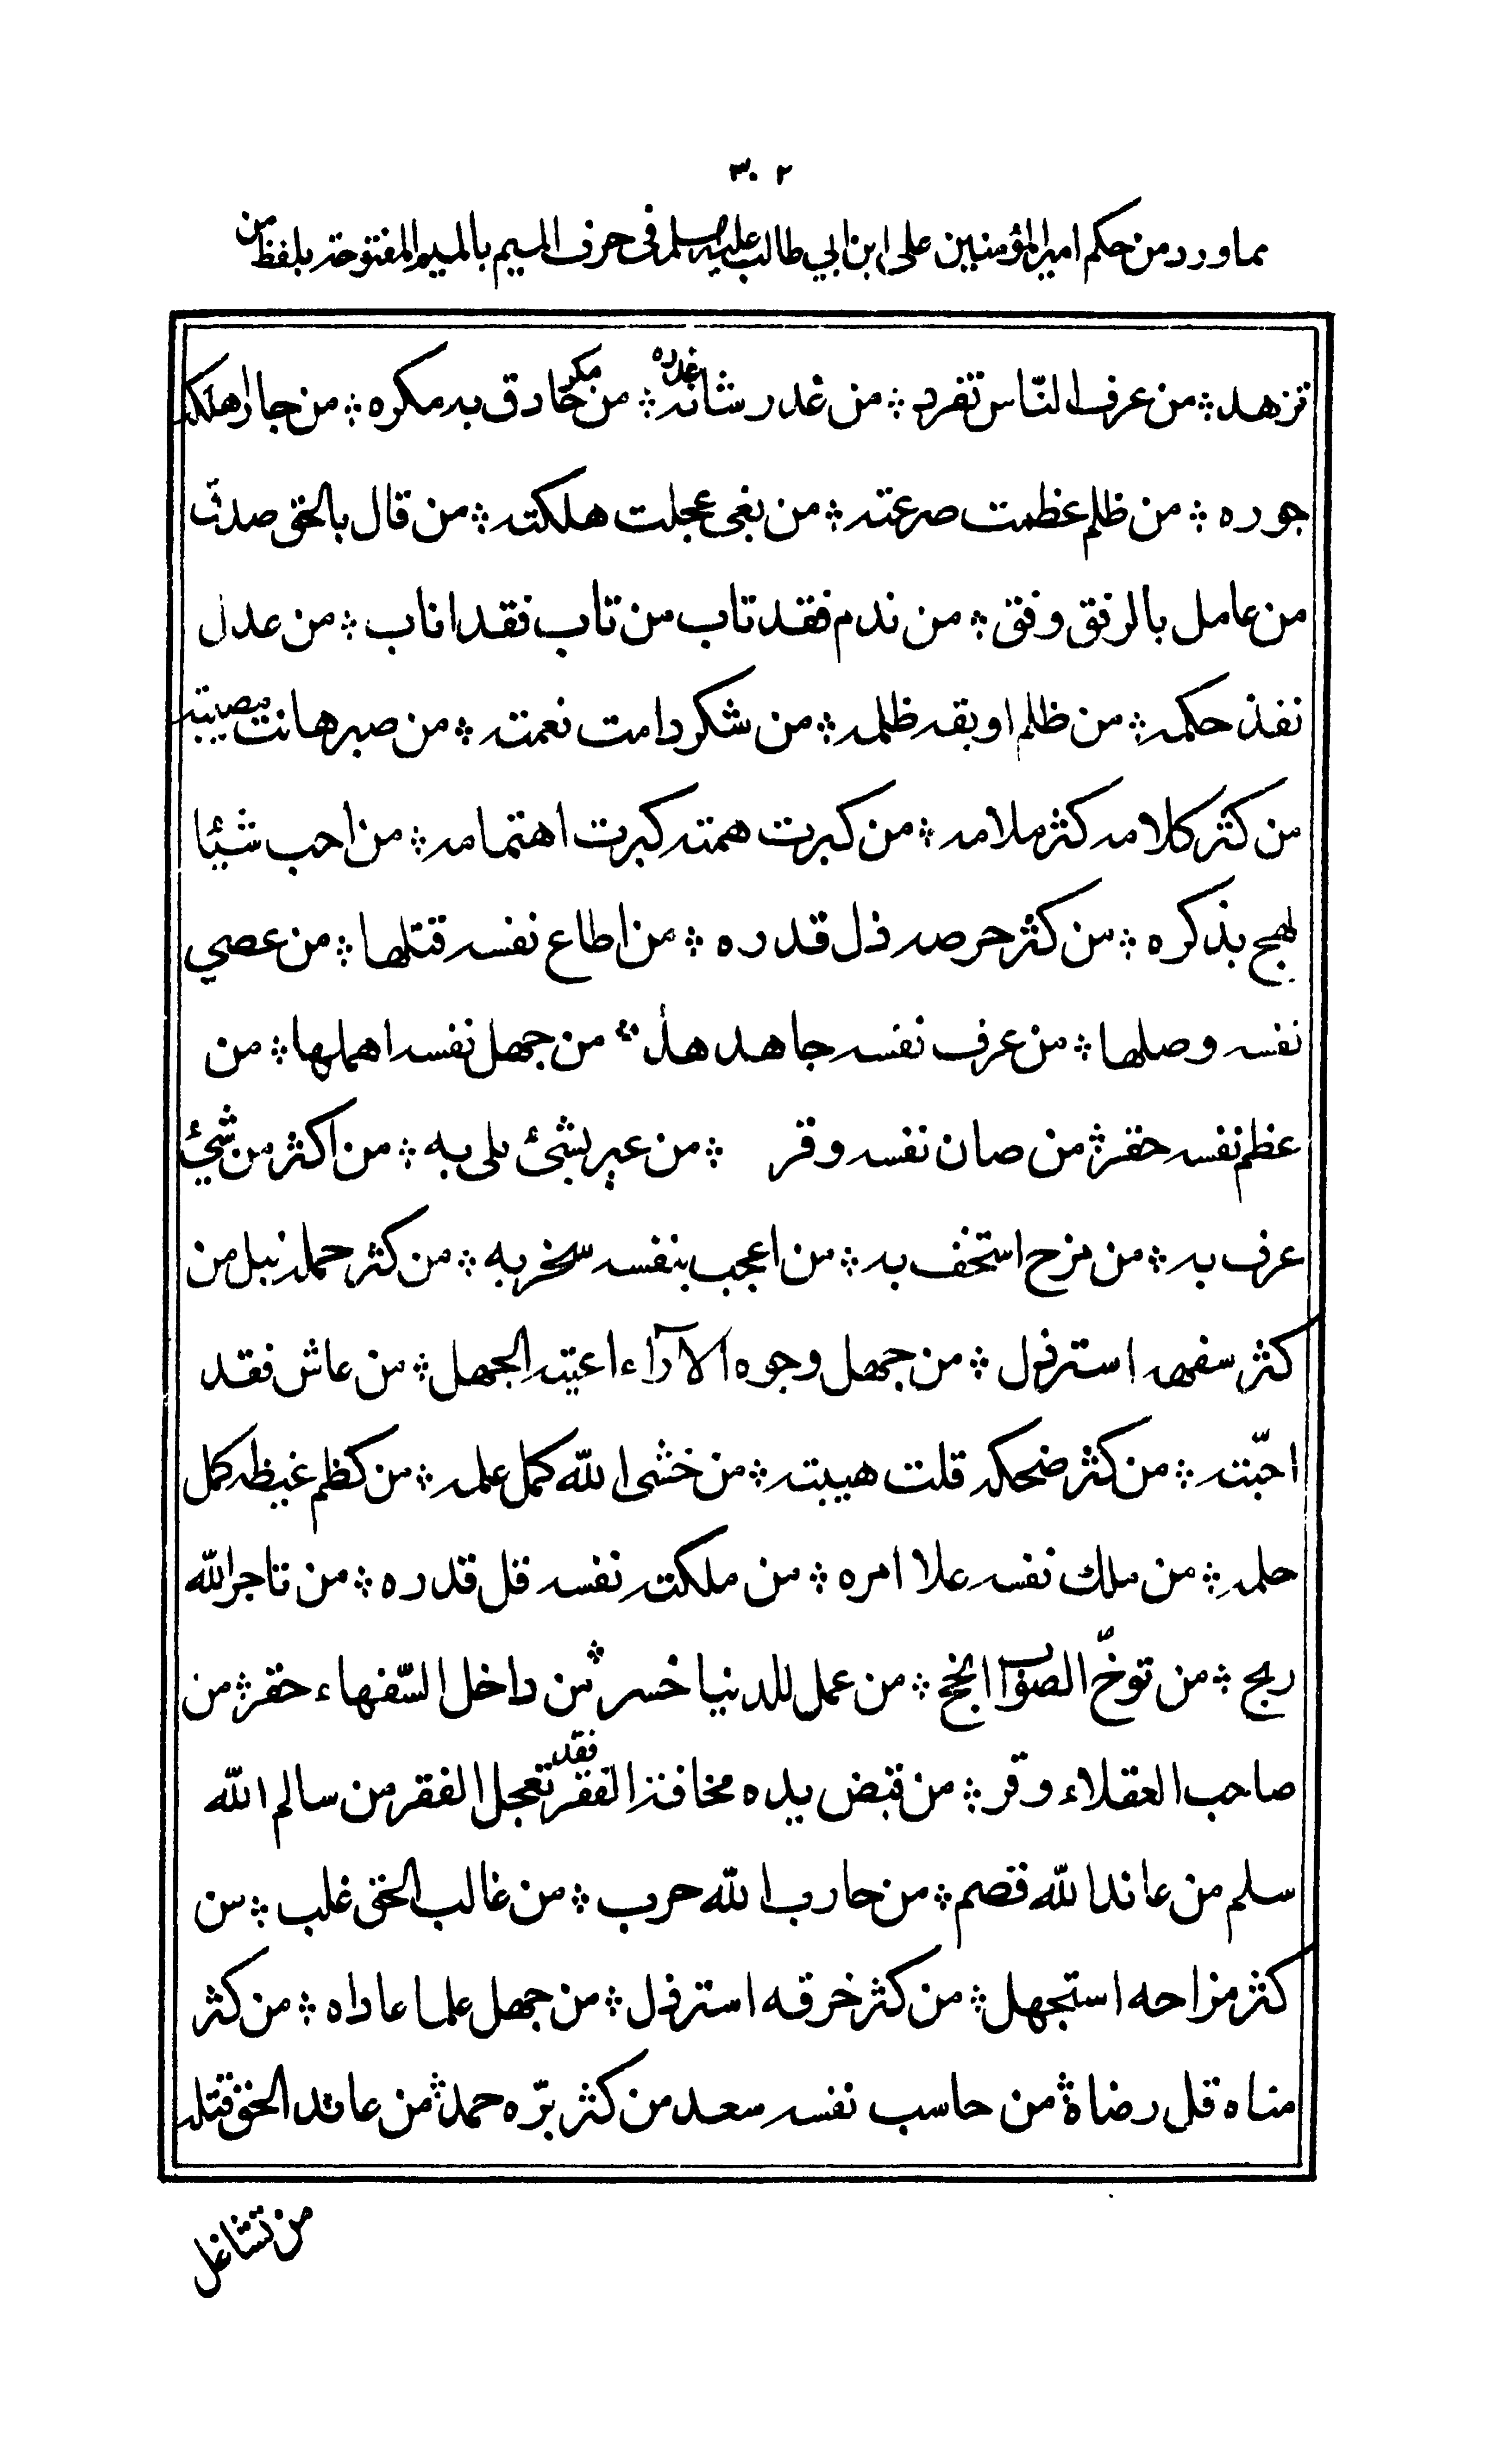 ٣٠٢
مما ورد من حكم امير المؤمنين على ابن ابي طالب عليه السلم فى حرف الميم بالميم المفتوحة بلفظ من
تزهد ؞ من عرف النّاس تفرد ؞ من غدر شانه غدره ؞ من مكر حاق به مكره ؞ من جار اهلكه
جوره ؞ من ظلم عظمت صرعته ؞ من بغى عجلت هلكته ؞ من قال بالحق صدق
من عامل بالرفق وفق ؞ من ندم فقد تاب من تاب فقد اناب ؞ من عدل
نفذ حكمه ؞ من ظلم اوبقه ظلمه ؞ من شكر دامت نعمته ؞ من صبر هانت مصيبته
من كثر كلامه كثر ملامه ؞ من كبرت همته كبرت اهتمامه ؞ من احب شيئا
لهج بذكره ؞ من كثر حرصه ذل قدره ؞ من اطاع نفسه قتلها ؞ من عصي
نفسه وصلها ؞ من عرف نفسه جاهدها ؞ من جهل نفسه اهملها ؞ من
عظم نفسه حقر ؞ من صان نفسه وقر ؞ من عير بشئ بلى به ؞ من اكثر من شئ
عرف به ؞ من مزح استخف به ؞ من اعجب بنفسه سخر به ؞ من كثر حمله نبل من
كثر سفهه استرذل ؞ من جهل وجوه الآراء اعيته الحيل ؞ من عاش فقد
احبّته ؞ من كثر ضحكه قلت هيبته ؞ من خشى الله كمل علمه ؞ من كظم غيظه كمل
حلمه ؞ من ملك نفسه علا امره ؞ من ملكته نفسه قل قدره ؞ من تاجر الله
ربح ؞ من توخّ الصواب انجح ؞ من عمل للدنيا خسر ؞ من داخل السّفهاء حقر ؞ من
صاحب العقلاء وقر ؞ من قبض يده مخافة الفقر فقد تعجل الفقر من سالم الله
سلم من عاند الله قصم ؞ من حارب الله حرب ؞ من غالب الحق غلب ؞ من
كثر مزاحه استجهل ؞ من كثر خرقه استرذل ؞ من جهل علما عاداه ؞ من كثر
مناه قل رضاه ؞ من حاسب نفسه سعد من كثر برّه حمد ؞ من عاند الحق قتله
من تشاغل